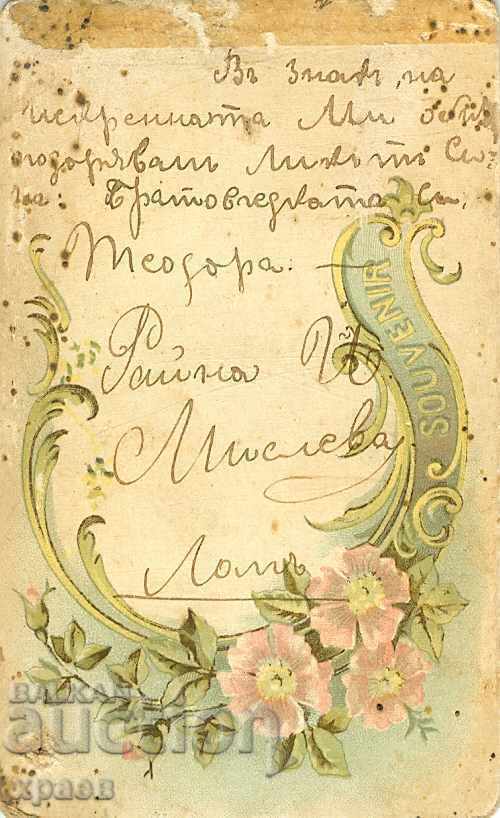 Въ Знакъ, на
искренната Ми обич
подорявамъ Ликътъ Си
на: Братовчедката Си,
Теодора. —
Райна
Мислева
Ломъ
SOUVENIR
BALKAN
auction
храов